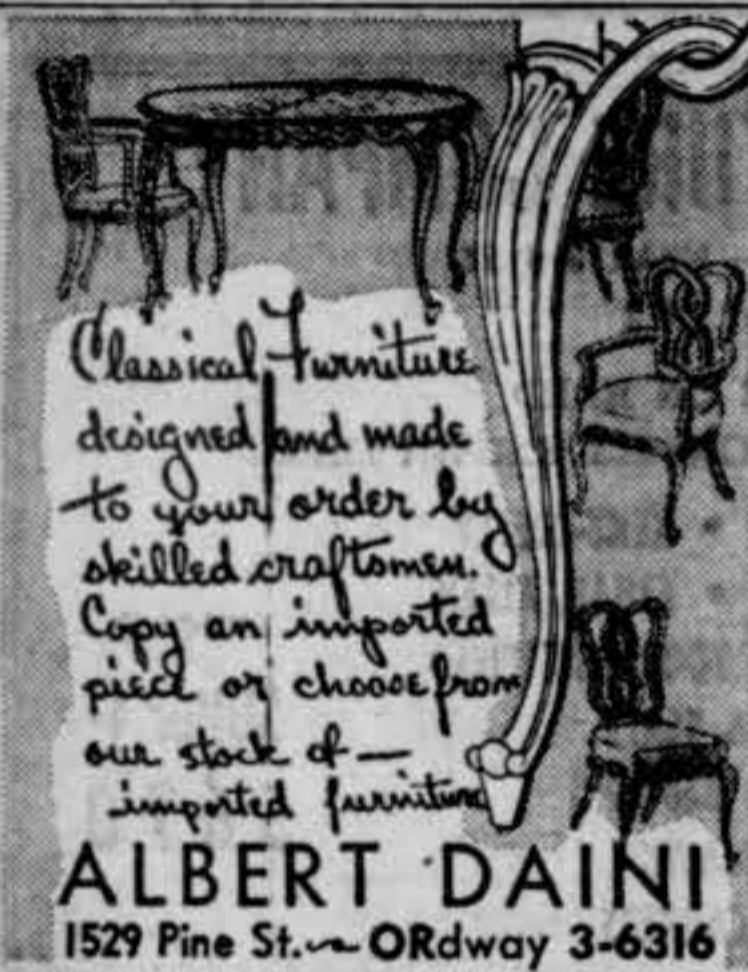 Classical Furniture
designed and made
to your order by
skilled craftsmen.
Copy an imported
piece or choose from
our stock of —
imported furniture
ALBERT DAINI
1529 Pine St. ORdway 3-6316